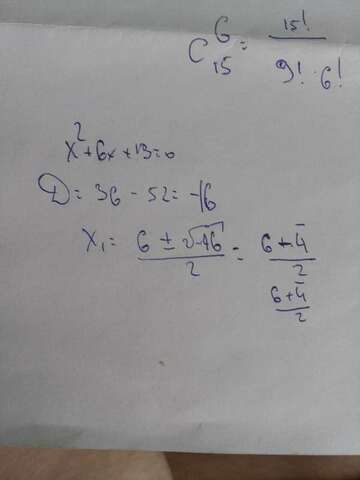 C₁₅⁶ = 15! / 9! · 6!
x² + 6x + 13 = 0
D = 36 - 52 = -16
x₁ = 6 ± √-16 / 2 = 6 + -4 / 2
6 + -4 / 2